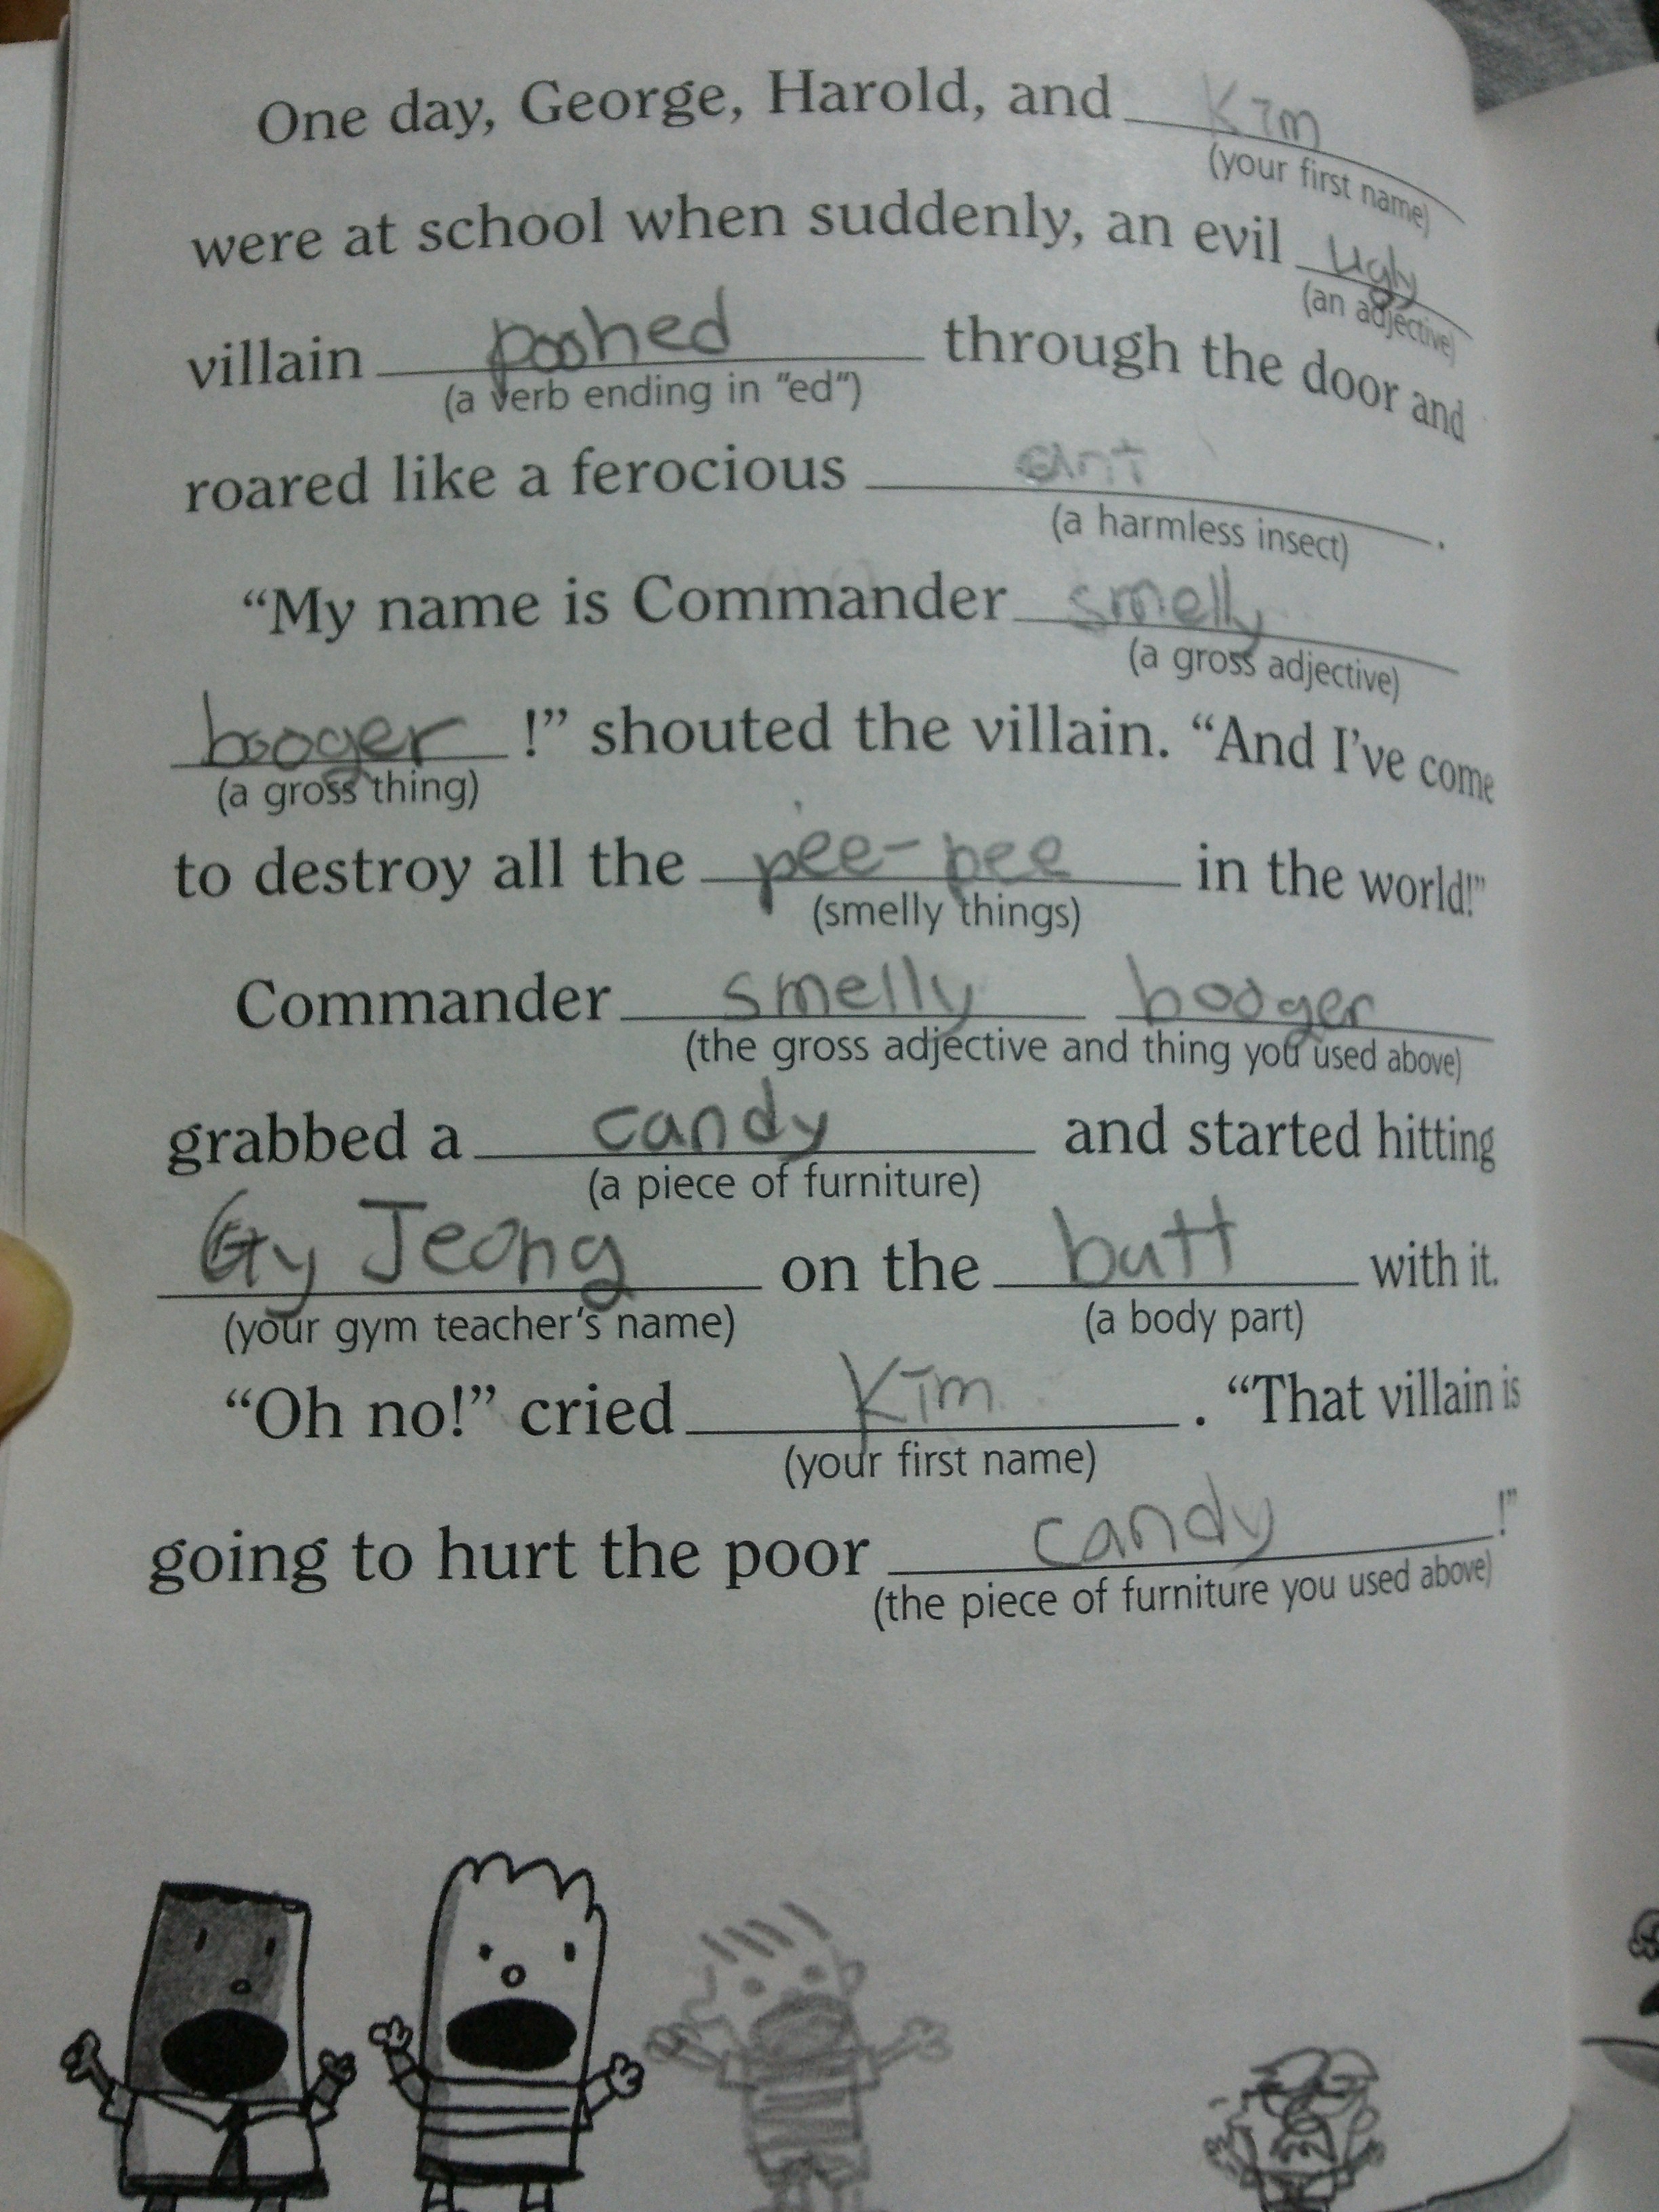 One day, George, Harold, and Kim
(your first name)
were at school when suddenly, an evil ugly
(an adjective)
villain poohed through the door and
(a verb ending in "ed")
roared like a ferocious ant.
(a harmless insect)
“My name is Commander smelly
(a gross adjective)
booger!” shouted the villain. “And I’ve come
(a gross thing)
to destroy all the pee-pee in the world!”
(smelly things)
Commander smelly booger
(the gross adjective and thing you used above)
grabbed a candy and started hitting
(a piece of furniture)
Gy Jeong on the butt with it.
(your gym teacher’s name) (a body part)
“Oh no!” cried Kim. “That villain is
(your first name)
going to hurt the poor candy!”
(the piece of furniture you used above)